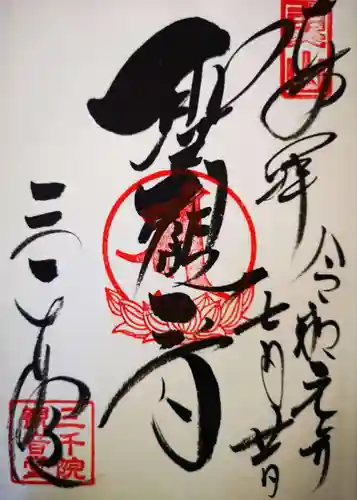 奉拝
令和元年
七月廿日
聖観音
三千院
三千院
観音堂